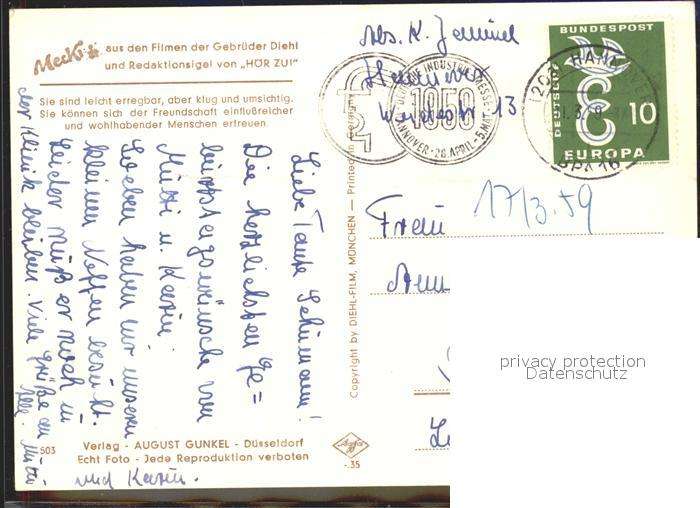 Mecki
aus den Filmen der Gebrüder Diehl
und Redaktionsigel von „HÖR ZU!“
Sie sind leicht erregbar, aber klug und umsichtig.
Sie können sich der Freundschaft einflußreicher
und wohlhabender Menschen erfreuen
Liebe Tante
Die herzlichsten Ge=
burtstagswünsche von
Mutti u. Karin.
Soeben haben wir unseren
kleinen Neffen besucht.
Leider muß er noch in
der Klinik bleiben. Viele Grüße an
Alle. Mutti
und Karin.
503
Verlag - AUGUST GUNKEL - Düsseldorf
Echt Foto - Jede Reproduktion verboten
Agfa
-.35
Copyright by DIEHL-FILM, MÜNCHEN — Printed in Germany
Abs. K.
Hannover
13
INDUSTRIE MESSE
1959
HANNOVER - 26. APRIL - 5. MAI
HANNOVER
DEUTSCHE
BUNDESPOST
10
EUROPA
17/3.59
Frau
privacy protection
Datenschutz